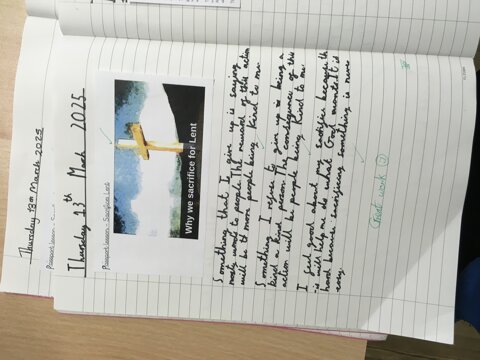 Thursday 13th March 2025
Thursday 13th March 2025
Passport lesson - Sacrifice Lent
Why we sacrifice for Lent
Something that I give up is saying
nasty words to people. The reward of this action
will be more people being kind to me.
Something I refuse to give up is being a
kind a kind person. The consequence of this
action will be people being kind to me.
I feel good about my sacrifice because th
is will help me do what God wants. It is
hard because sacrificing something is never
easy.
Great work